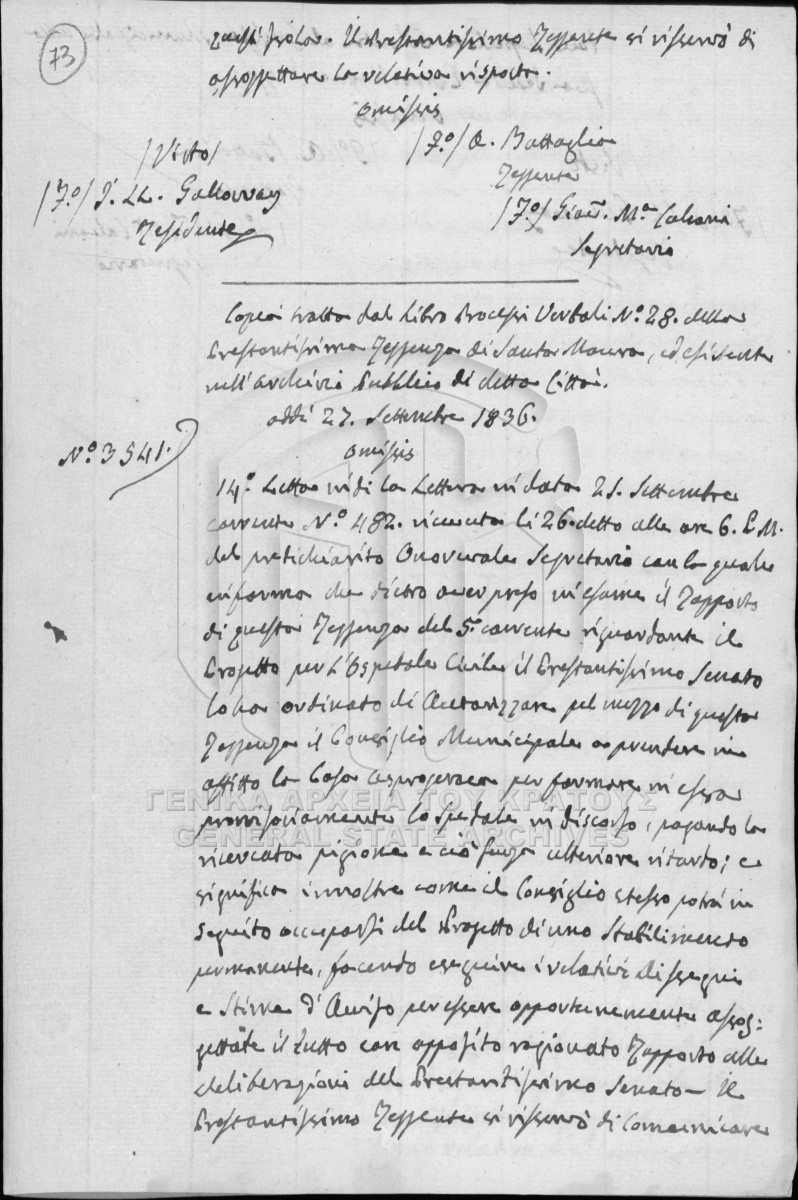 73
quest' Isola. Il Prestantissimo Reggente si risservò di
assoggettare la relativa risposta.
Omissis
/Visto/
/Fo/ A. Battaglia
Reggente
/Fo/ J. LL. Gallovvay
Residente
/Fo/ Giac. Ma Calsani
Segretario
Copia tratta dal Libro Processi Verbali No. 28. della
Prestantissima Reggenza di Santa Maura, ed esistente
nell'Archivio Pubblico di detta Città.
addì 27. Settembre 1836.
Omissis
No. 3541.
14o. Letta indi la Lettera in data 21. Settembre
corrente No. 482. ricevuta li 26. detto alle ore 6. P.M.
del predichiarito Onorevole Segretario con la quale
informa che dietro aver preso in esame il Rapporto
di questa Reggenza del 5. corrente riguardante il
Progetto per l'Ospitale Civile il Prestantissimo Senato
lo ha ordinato di Autorizzare pel mezzo di questa
Reggenza il Consiglio Municipale a prendere in
affitto la Casa per formare in essa
provisoriamente lo spedale in discorso, pagando la
ricercata pigione e ciò senza ulteriore ritardo; e
significa innoltre come il Consiglio stesso potrà in
seguito occuparsi del Progetto di uno Stabilimento
permanente, facendo eseguire i relativi Dissegni
e Stima d'Aviso per essere opportunemente assog:
gettate il tutto con apposito ragionato Rapporto alle
deliberazioni del Prestantissimo Senato – Il
Prestantissimo Reggente si risservò di Comunicare
ΓΕΝΙΚΑ ΑΡΧΕΙΑ ΤΟΥ ΚΡΑΤΟΥΣ
GENERAL STATE ARCHIVES